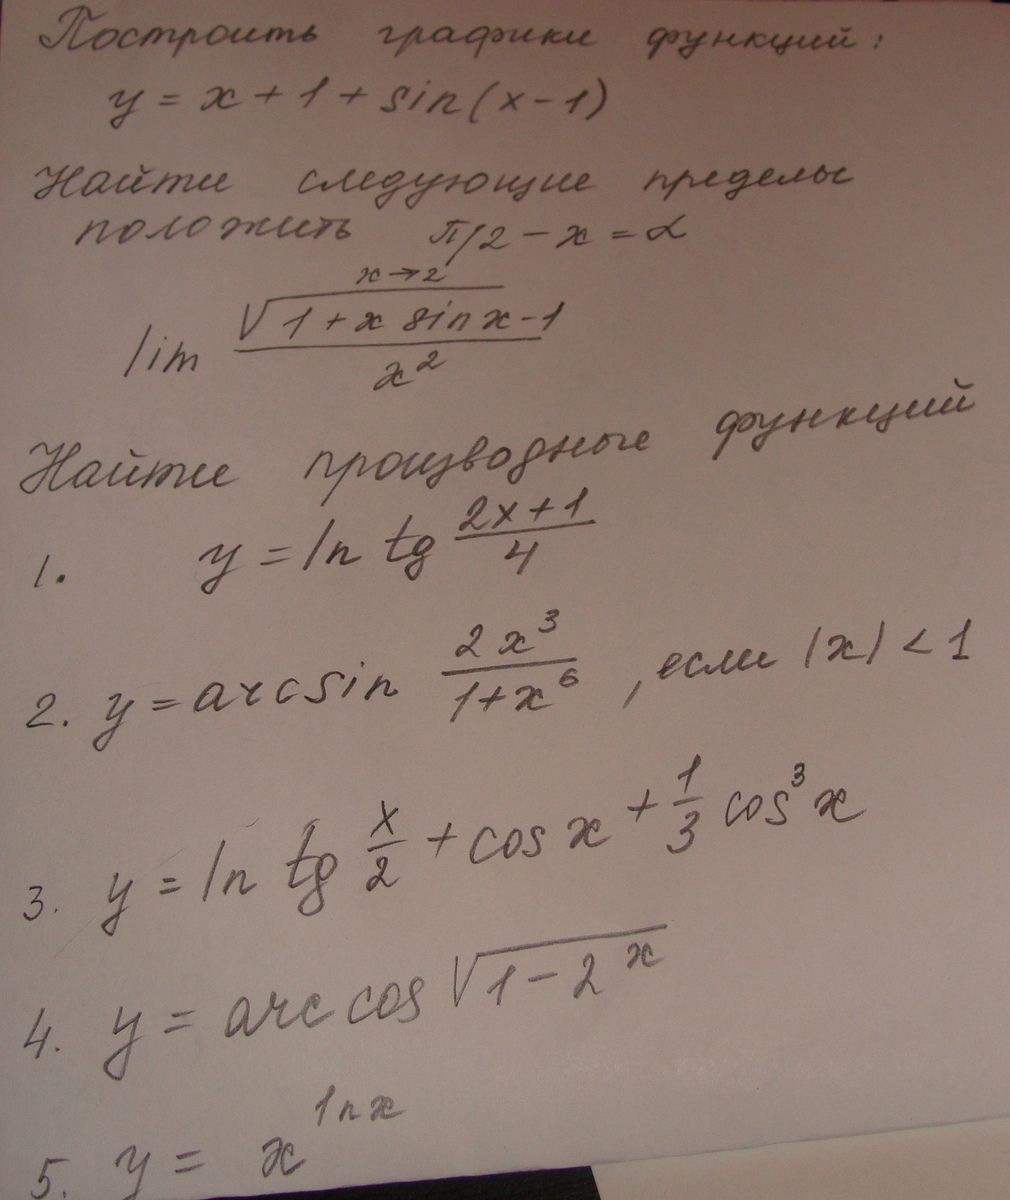 Построить графики функций:
y = x + 1 + sin(x - 1)
Найти следующие пределы
положить π/2 - x = α
x→2
lim √(1 + x sin x - 1) / x²
Найти производные функций
1. y = ln tg (2x+1)/4
2. y = arcsin 2x³/(1+x⁶), если |x| < 1
3. y = ln tg x/2 + cos x + 1/3 cos³ x
4. y = arc cos √(1 - 2ˣ)
5. y = x^(ln x)